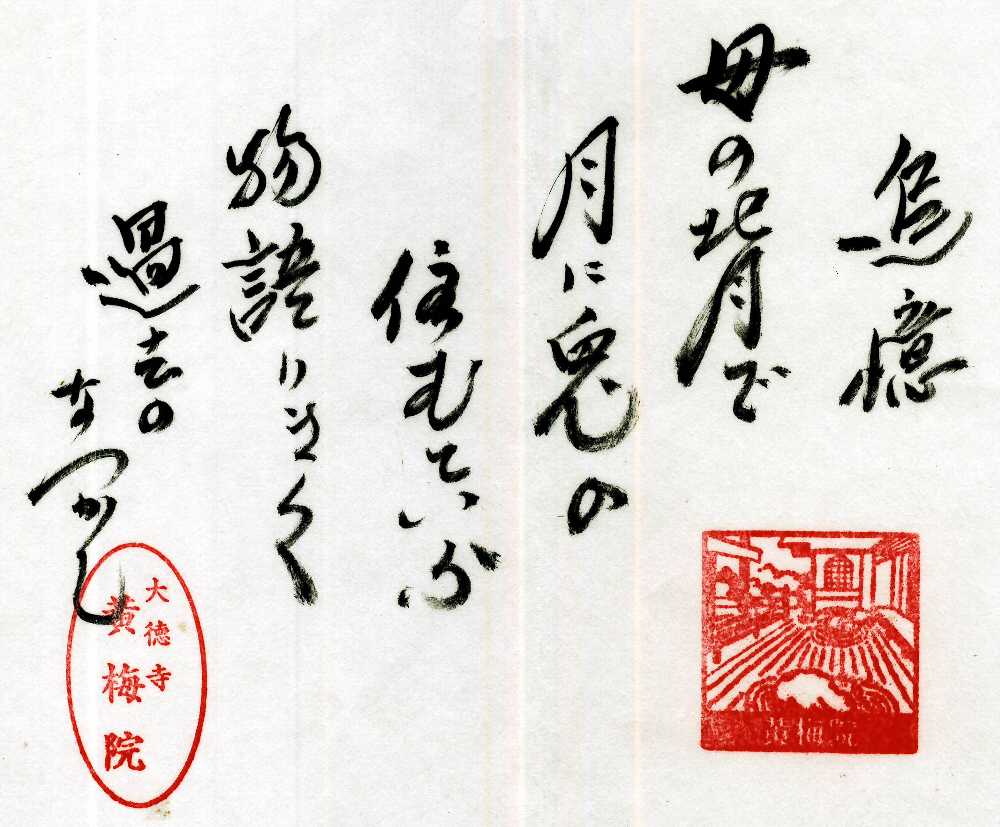 追憶
母の背で
月に兎の
住むといふ
物語りきく
過去の
なつかし
黄梅院
大徳寺
黄梅院